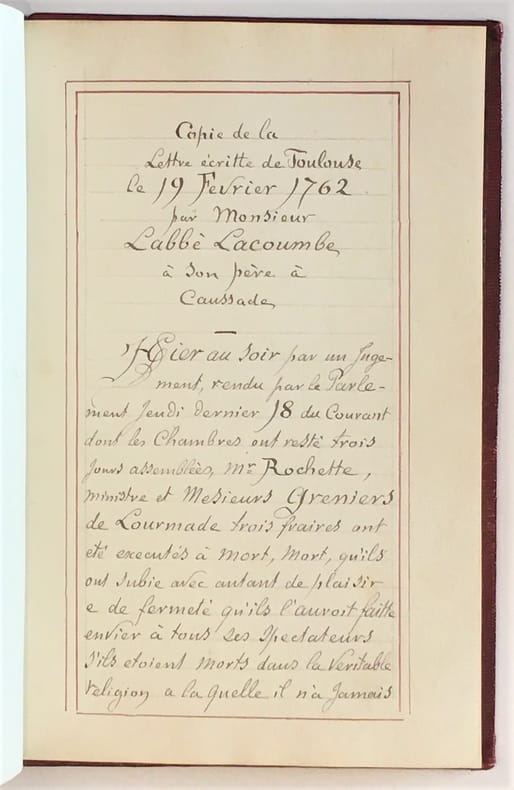 Copie de la
Lettre écritte de Toulouse
le 19 Fevrier 1762
par Monsieur
Labbè Lacoumbe
à son père à
Caussade
HEier au soir par un Juge-
ment, rendu par le Parle-
ment Jeudi dernier 18 du Courant
dont les Chambres ont resté trois
Jours assemblèes, Mr Rochette,
ministre et Mesieurs Greniers
de Lourmade trois fraires ont
eté executés à mort, Mort, qu'ils
ont subie avec autant de plaisir
e de fermeté qu'ils l'auroit faitte
envier à tous ses Spectateurs
S'ils etoient morts dans la Veritable
religion a la quelle il n'a Jamais